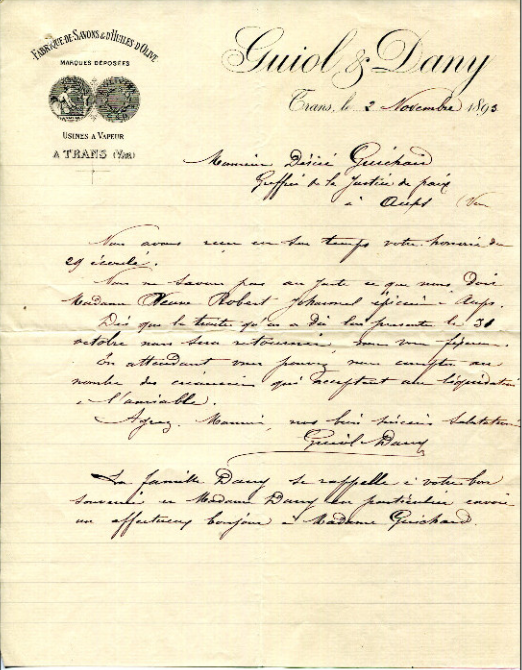 FABRIQUE DE SAVONS & D'HUILES D'OLIVE
MARQUES DÉPOSÉES
USINES A VAPEUR
A TRANS (VAR)
Guiol & Dany
Trans, le 2 Novembre 1893
Monsieur Désiré Guichard
Greffier de la Justice de paix
à Aups (Var
Nous avons reçu en son temps votre honorée du
29 écoulé.
Nous ne savons pas au juste ce que nous doit
Madame Veuve Robert épicière à Aups.
Dès que la traite qu'on a dû lui présenter le 31
octobre nous sera retournée nous vous fixerons.
En attendant vous pouvez nous compter au
nombre des créanciers qui acceptent une liquidation
à l'amiable.
Agréez, Monsieur, nos bien sincères salutations
Guiol Dany
La famille Dany se rappelle à votre bon
souvenir et Madame Dany en particulier envoie
un affectueux bonjour à Madame Guichard